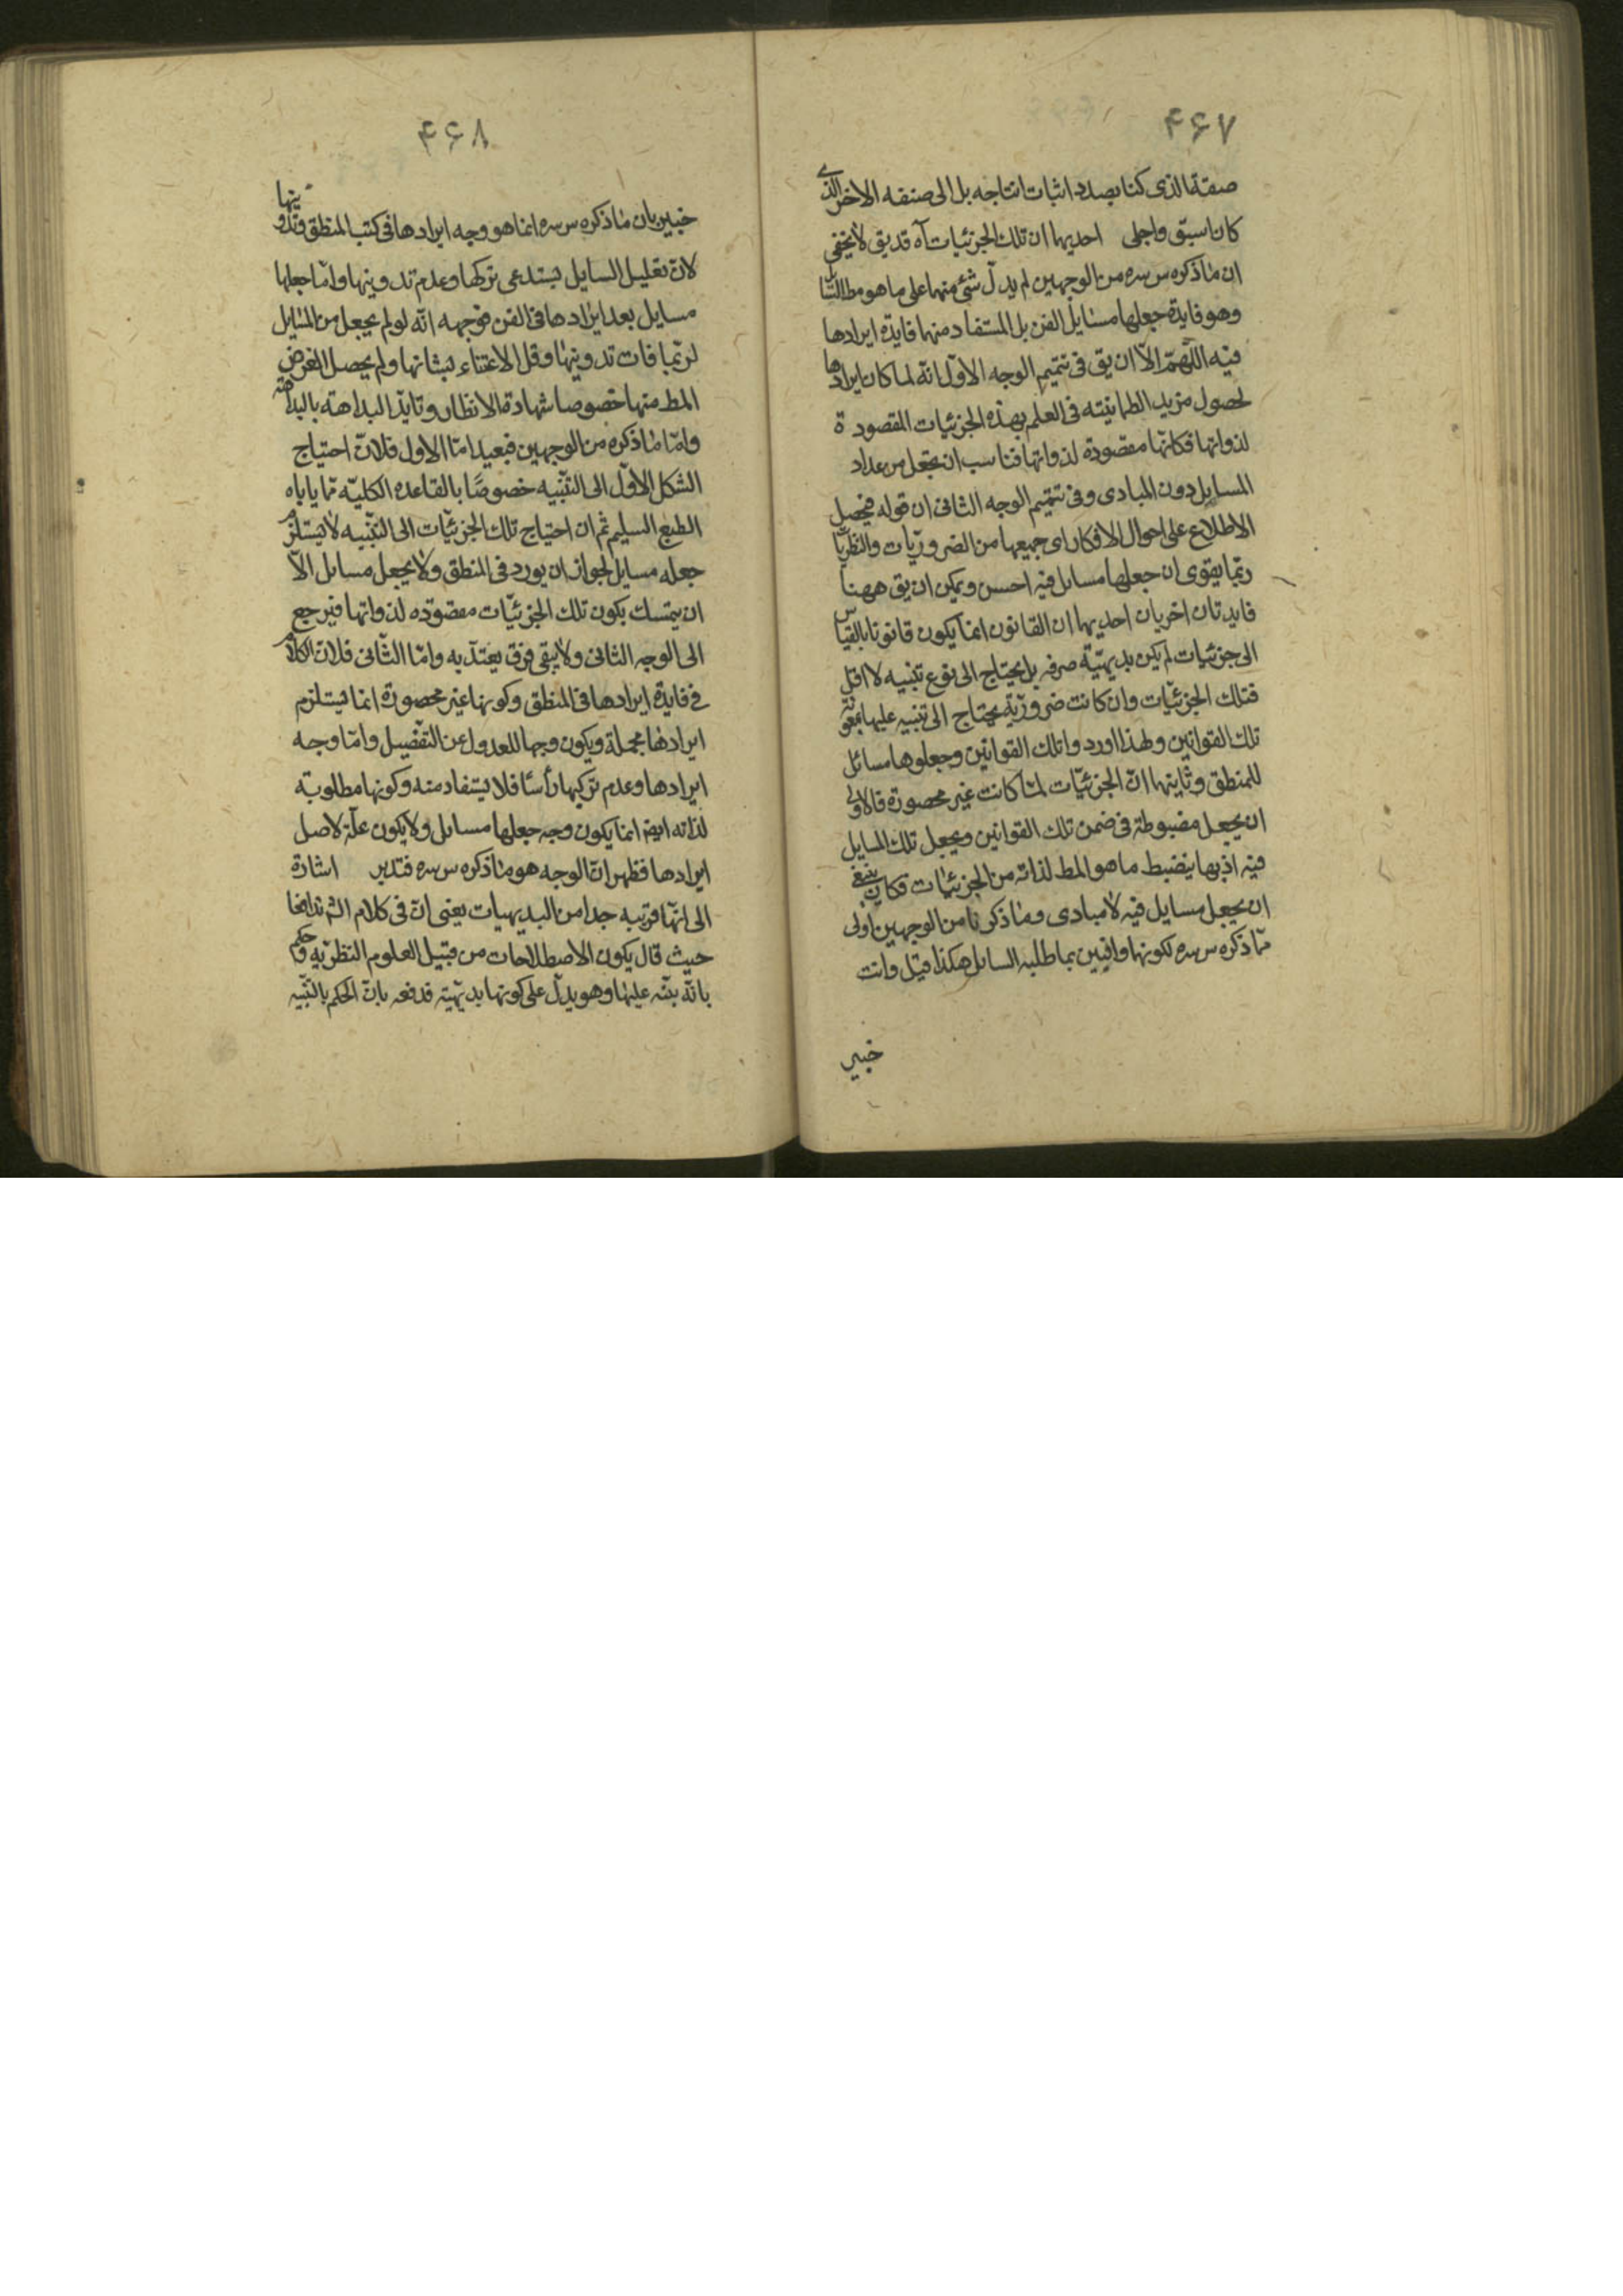 ۴۶۷
صنفه الذی کنا بصدد اثبات انتاجه بل الی صنفه الاخر الذی
کان اسبق واجلی احدیهما ان تلک الجزئیات آه قد یق لا یخفی
ان ما ذکره س سره من الوجهین لم یدل شئ منهما علی ما هو مط السایل
وهو فایدة جعلها مسایل الفن بل المستفاد منهما فایدة ایرادها
فیه اللّهمّ الّا ان یق فی تتمیم الوجه الاوّل انّه لما کان ایرادها
لحصول مزید الطمانینه فی العلم بهذه الجزئیات المقصودة
لذواتها فکانّها مقصودة لذواتها فناسب ان یجعل من عداد
المسایل دون المبادی وفی تتمیم الوجه الثانی ان قوله فیحصل
الاطلاع علی احوال الافکار ای جمیعها من الضروریّات والنظریّات
ربّما یقوی ان جعلها مسایل فیه احسن ویمکن ان یق ههنا
فایدتان اخریان احدیهما ان القانون انما یکون قانونا بالقیاس
الی جزئیات لم یکن بدیهیّة صرفه بل یحتاج الی نوع تنبیه لا اقل
فتلک الجزئیّات وان کانت ضروریّة یحتاج الی تنبیه علیها بمعونة
تلک القوانین ولهذا اوردوا تلک القوانین وجعلوها مسائل
للمنطق وثانیها انّ الجزئیّات لمّا کانت غیر محصورة فالاولی
ان یجعل مضبوطة فی ضمن تلک القوانین ویجعل تلک المسایل
فیه اذ بها ینضبط ما هو المط لذاته من الجزئیّات فکان ینبغی
ان یجعل مسایل فیه لا مبادی وما ذکرنا من الوجهین اولی
ممّا ذکره س سره لکونها وافیین بما طلبه السایل هکذا قیل وانت
خبیر
۴۶۸
خبیر بان ما ذکره س سره انما هو وجه ایرادها فی کتب المنطق وتدوینها
لانّ تعلیل السایل یستدعی ترکها وعدم تدوینها وامّا جعلها
مسایل بعد ایرادها فی الفن فوجهه انّه لو لم یجعل من المسایل
لربّما فات تدوینها وقل الاعتناء بشانها ولم یحصل الغرض
المط منها خصوصا شهادة الانظار وتاید البداهة بالبداهة
وامّا ما ذکره من الوجهین فبعید امّا الاول فلانّ احتیاج
الشکل الاوّل الی التنبیه خصوصًا بالقاعده الکلیّه ممّا یاباه
الطبع السلیم ثم ان احتیاج تلک الجزئیّات الی التنبیه لا یستلزم
جعله مسایل لجواز ان یورد فی المنطق ولا یجعل مسایل الّا
ان یتمسک بکون تلک الجزئیّات مقصوده لذواتها فیرجع
الی الوجه الثانی ولا یبقی فرق یعتدّ به وامّا الثّانی فلانّ الکلام
فی فایدة ایرادها فی المنطق وکونها غیر محصورة انما یستلزم
ایرادها مجملة ویکون وجها للعدول عن التفصیل وامّا وجه
ایرادها وعدم ترکیها رأسًا فلا یستفاد منه وکونها مطلوبة
لذاته ایضا انما یکون وجه جعلها مسایل ولا یکون علّة لاصل
ایرادها فظهر انّ الوجه هو ما ذکره س سره فتدبر اشارة
الی انّها قریبه جدا من البدیهیات یعنی انّ فی کلام الش تدافعا
حیث قال یکون الاصطلاحات من قبیل العلوم النظریّه وحکم
بانّه ینبّه علیها وهو یدلّ علی کونها بدیهیّة فدفعه بانّ الحکم بالتنبیه